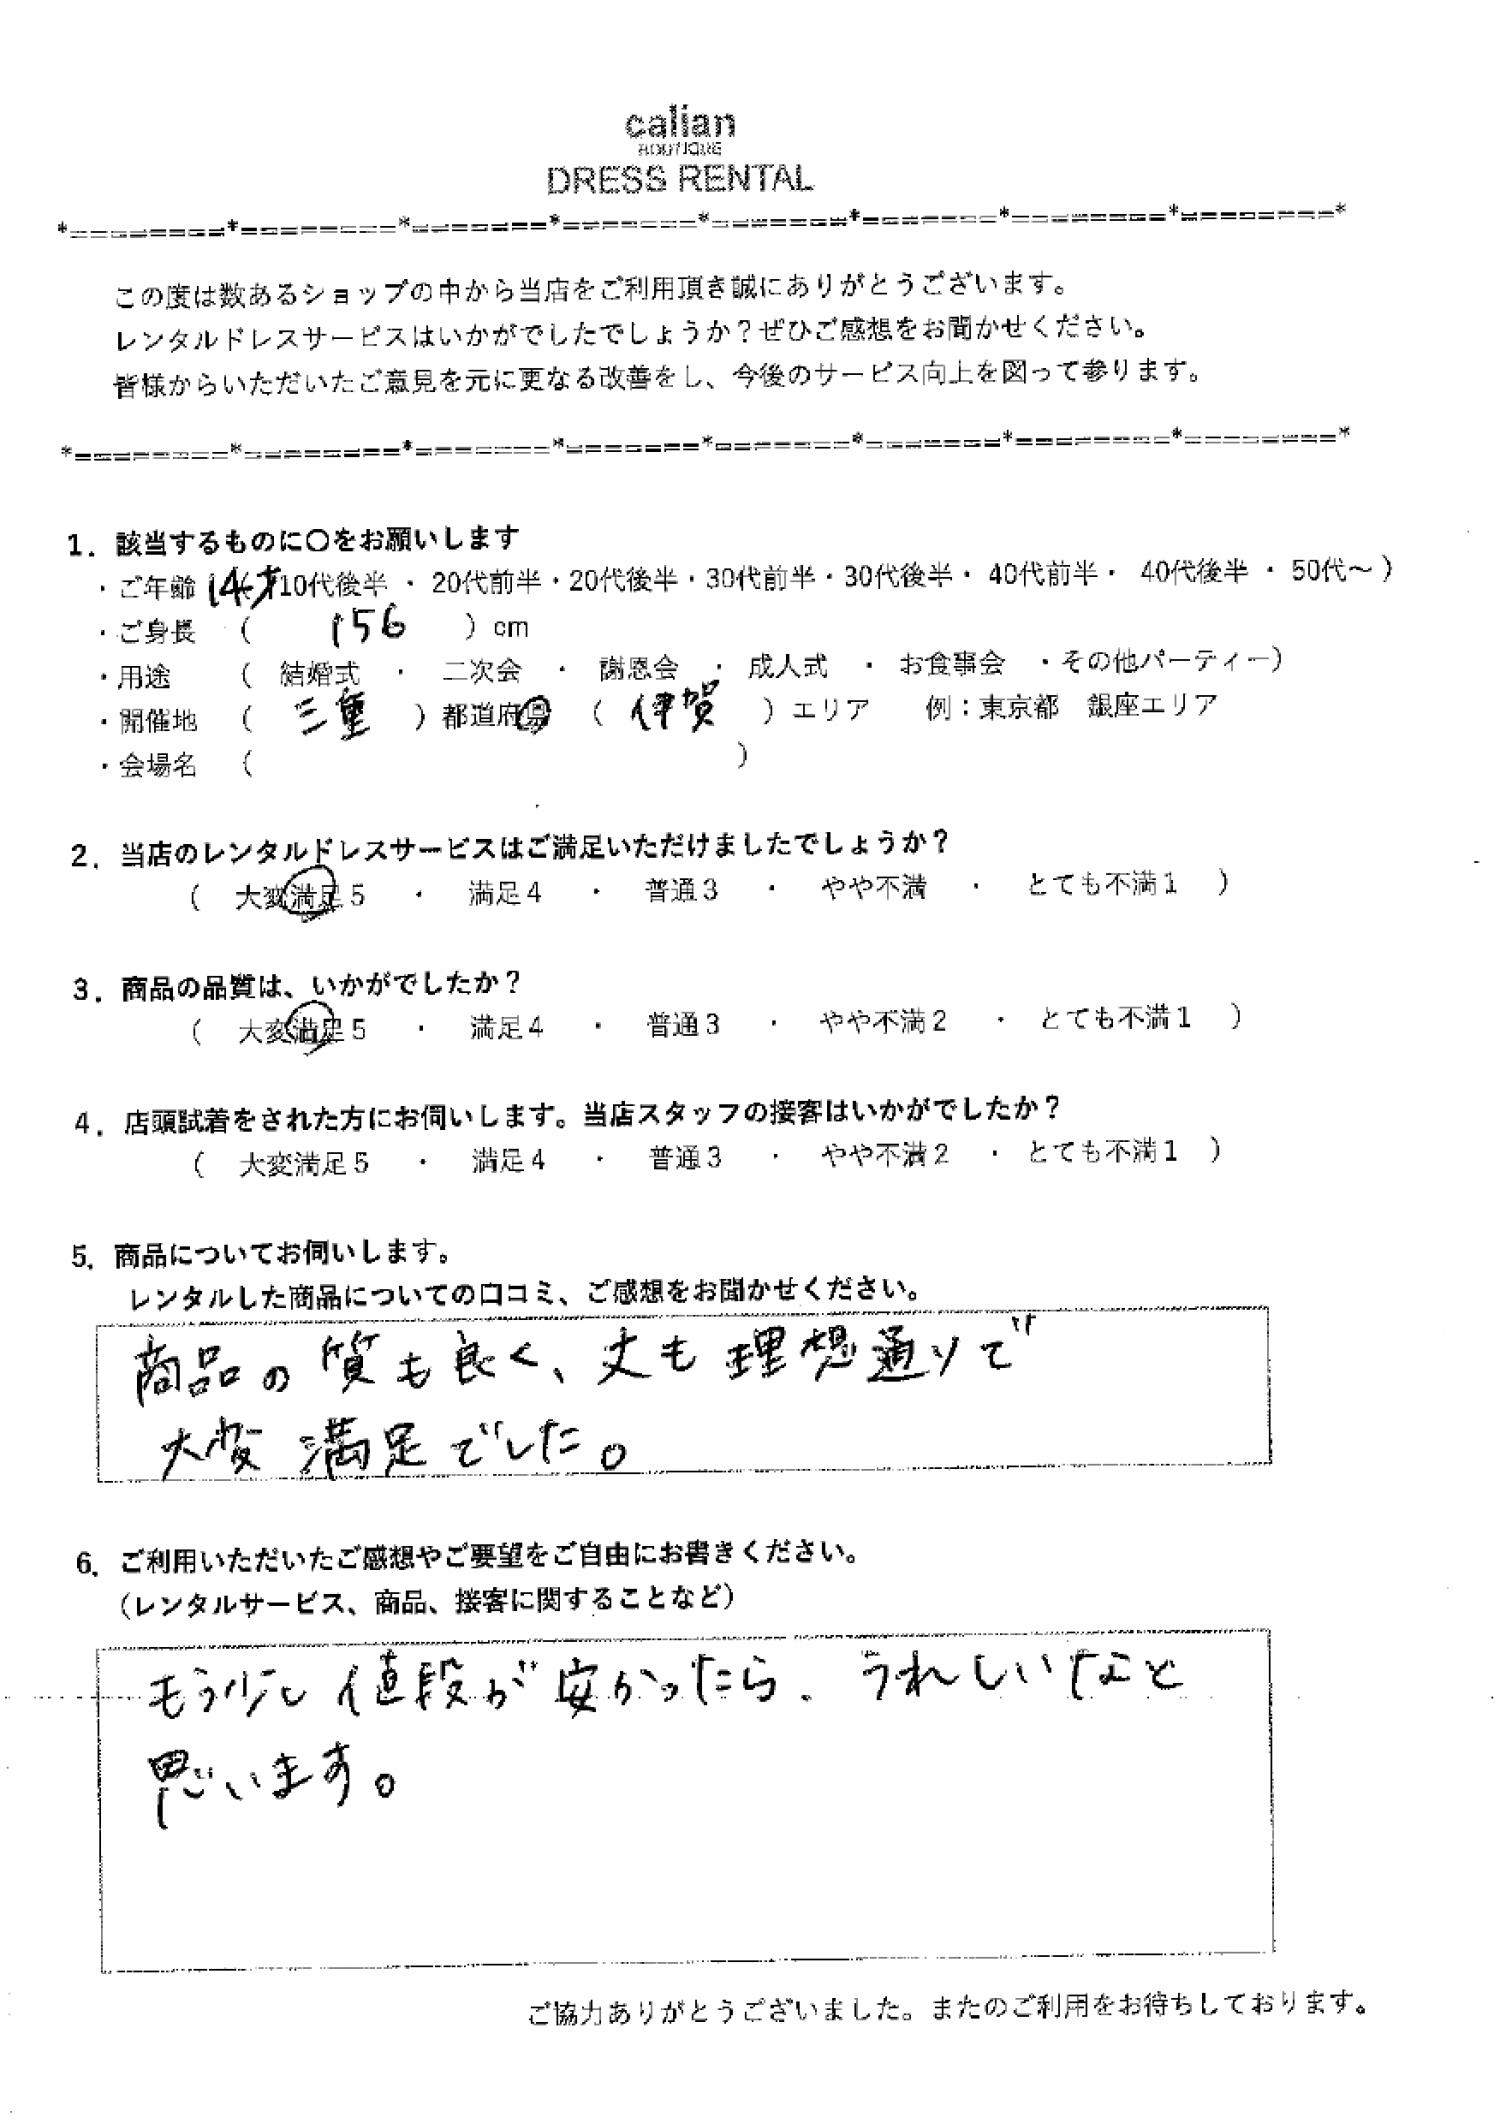 calian
BOUTIQUE
DRESS RENTAL
*========*========*=======*=======*=======*=======*========*========*
この度は数あるショップの中から当店をご利用頂き誠にありがとうございます。
レンタルドレスサービスはいかがでしたでしょうか？ぜひご感想をお聞かせください。
皆様からいただいたご意見を元に更なる改善をし、今後のサービス向上を図って参ります。
*========*========*=======*=======*=======*=======*========*========*
1. 該当するものに〇をお願いします
・ご年齢 14才 10代後半 ・ 20代前半・20代後半・30代前半・30代後半・ 40代前半・ 40代後半 ・ 50代～ ）
・ご身長 （ 156 ）cm
・用途 （ 結婚式 ・ 二次会 ・ 謝恩会 ・ 成人式 ・ お食事会 ・その他パーティー）
・開催地 （ 三重 ）都道府県 （ 伊賀 ）エリア 例：東京都 銀座エリア
・会場名 （ ）
2. 当店のレンタルドレスサービスはご満足いただけましたでしょうか？
（ 大変満足５ ・ 満足４ ・ 普通３ ・ やや不満 ・ とても不満１ ）
3. 商品の品質は、いかがでしたか？
（ 大変満足５ ・ 満足４ ・ 普通３ ・ やや不満２ ・ とても不満１ ）
4. 店頭試着をされた方にお伺いします。当店スタッフの接客はいかがでしたか？
（ 大変満足５ ・ 満足４ ・ 普通３ ・ やや不満２ ・ とても不満１ ）
5. 商品についてお伺いします。
レンタルした商品についての口コミ、ご感想をお聞かせください。
商品の質も良く、丈も理想通りで
大変満足でした。
6. ご利用いただいたご感想やご要望をご自由にお書きください。
（レンタルサービス、商品、接客に関することなど）
もう少し値段が安かったら、うれしいなと
思います。
ご協力ありがとうございました。またのご利用をお待ちしております。